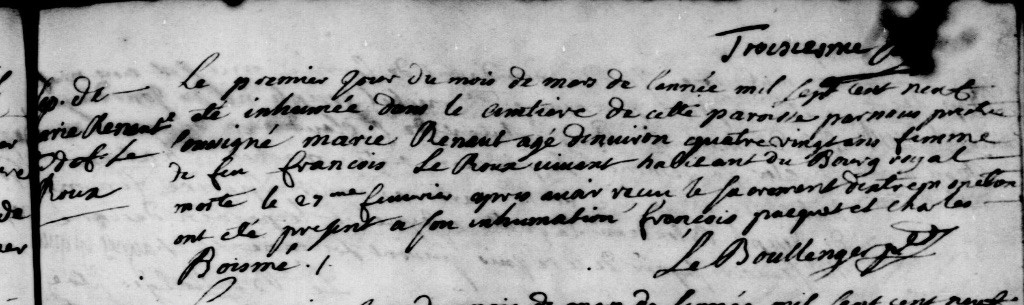 Troisiesme
Sep. de
marie Renaut
v. de f. Le
Roux
Le premier Jour du mois de mars de l'année mil sept cent neuf
eté inhumée dans le cimtiere de cette paroisse par nous pretre
soussigné marie Renaut agé d'environ quatre vingt ans femme
de feu francois Le Roux vivant habitant du Bourg royal
morte le 27me fevrier apres avoir recu le sacrement d'extreme onction
ont eté present a son inhumation francois pacquet et charles
Boismé ./.
Le Boullenger ptre
Le premier Jour du mois de mars de l'année mil sept cent neuf